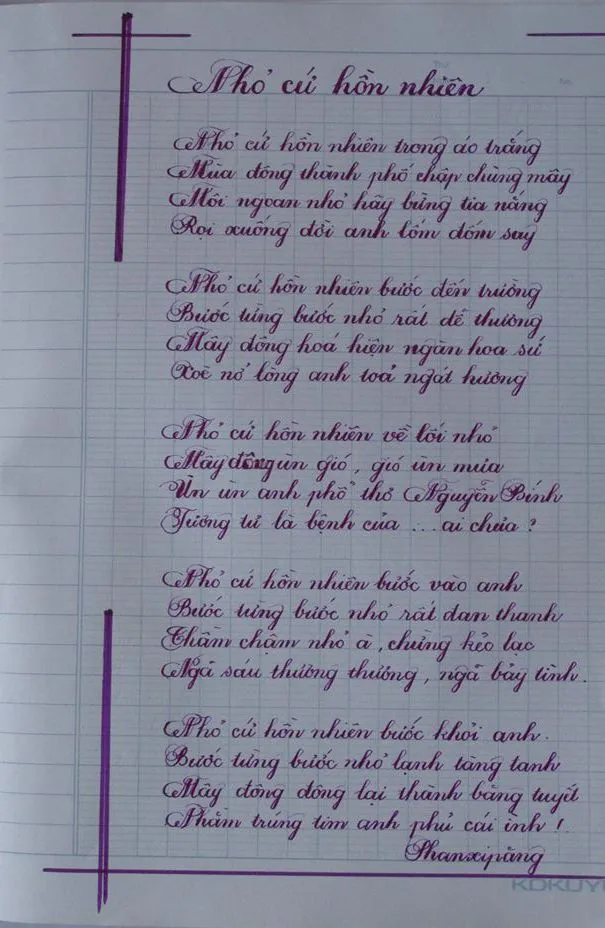 Nhỏ cứ hồn nhiên
Nhỏ cứ hồn nhiên trong áo trắng
Mùa đông thành phố chập chùng mây
Môi ngoan nhỏ hãy bừng tia nắng
Rọi xuống đời anh lốm đốm say
Nhỏ cứ hồn nhiên bước đến trường
Bước từng bước nhỏ rất dễ thương
Mây đông hoá hiện ngàn hoa sứ
Xoè nở lòng anh toả ngát hương
Nhỏ cứ hồn nhiên về lối nhỏ
Mây đông ùn gió, gió ùn mưa
Ùn ùn anh phổ thơ Nguyễn Bính
Tương tư là bệnh của ... ai chưa ?
Nhỏ cứ hồn nhiên bước vào anh
Bước từng bước nhỏ rất đan thanh
Chầm chậm nhỏ à, chừng kẻo lạc
Ngã sáu thương thương, ngã bảy tình.
Nhỏ cứ hồn nhiên bước khỏi anh.
Bước từng bước nhỏ lạnh tàng tanh
Mây đông đông lại thành băng tuyết
Phằm trúng tim anh phủ cái ình !
Phanxipăng
KOKUY